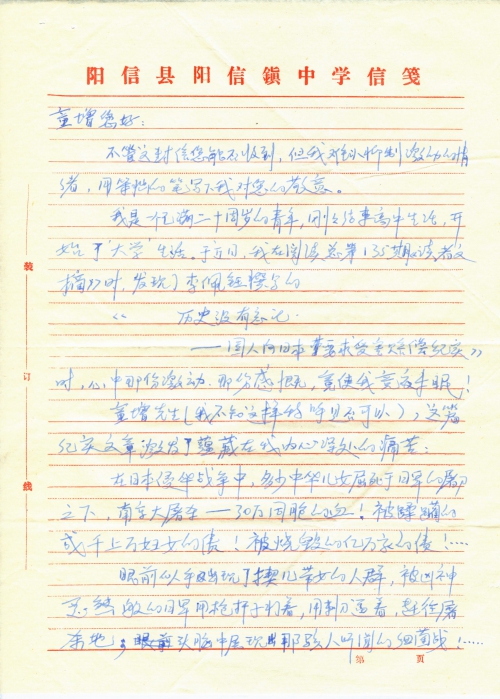 阳信县阳信鎮中学信笺
童增您好：
不管这封信您能不收到，但我难以抑制激动的情
绪，用笨拙的笔写下我对您的敬意。
我是一位满二十周岁的青年，刚刚结束高中生活，开
始了“大学”生活。于近日，我在阅读总第135期《读者文
摘》时，发现了李佩钰撰写的
《 历史没有忘记
——国人向日本要求受害赔偿纪实》
时，心中那份激动，那份感慨，竟使我竟夜未眠！
童增先生（我不知这样称呼是否可以），这篇
纪实文章激发了蕴藏在我内心深处的痛苦：
在日本侵华战争中，多少中华儿女屈死于日军的屠刀
之下，南京大屠杀——30万同胞的血！被蹂躏的
成千上万妇女的债！被烧毁的亿万家的债！……
眼前似乎出现了携儿带女的人群，被凶神
恶煞般的日军用枪杆子打着，用刺刀逼着，赶往屠
杀地；眼前头脑中呈现出那骇人听闻的细菌战！……
装
订
线
第 页